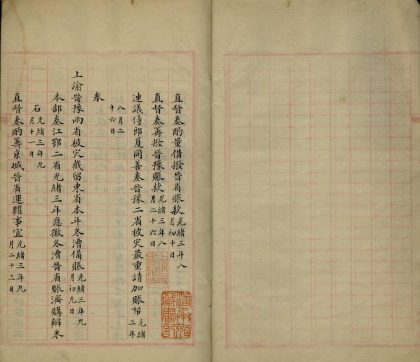 直督奏酌量借撥晉省賑款光緒三年八月初十日
直督奏籌撥晉豫賑款光緒三年八月二十六日
連議侍郎夏同善奏晉豫二省被灾最重請加賑恤光緒三年八月二十六日
奉
上諭晉豫兩省被灾截留東省本年冬漕備賑光緒三年九月初九日
本部奏江鄂二省光緒三年應徵冬漕晉省賑濟購辦米石光緒三年九月十一日
直督奏酌籌東城晉省運糧事宜光緒三年九月二十三日